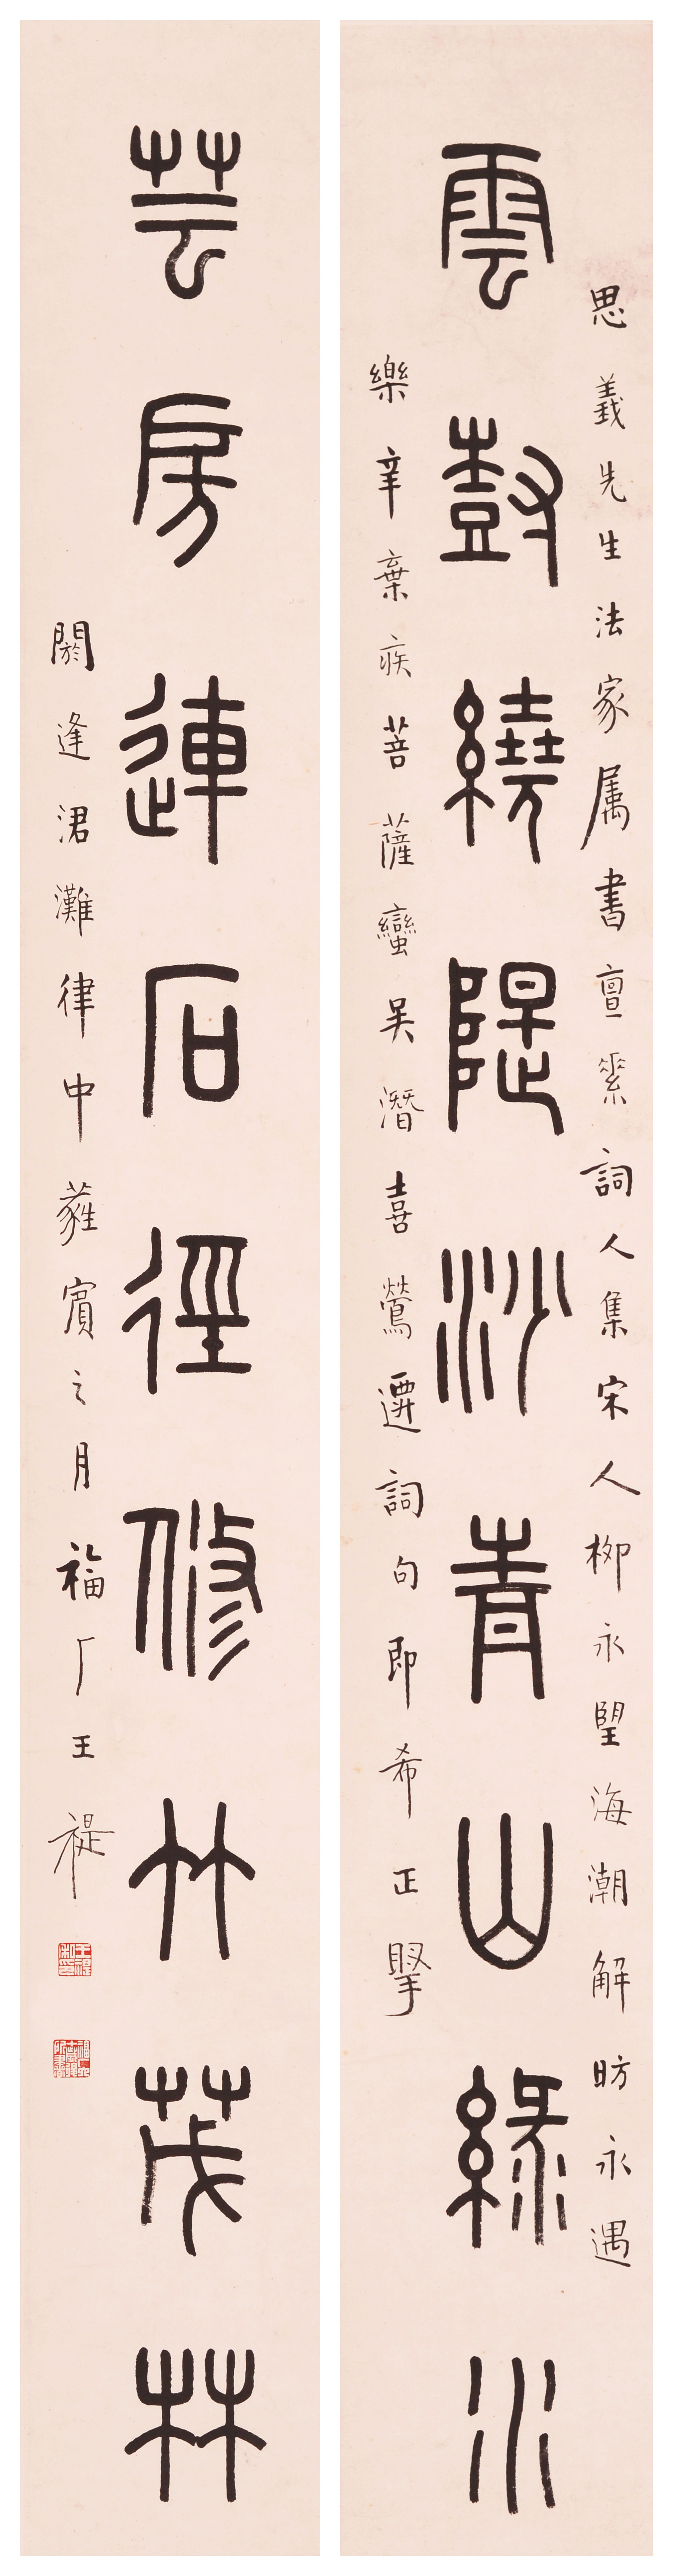 思義先生法家属書亶素詞人集宋人柳永望海潮解昉永遇
雲尌繞隄沙青山綠水
樂辛棄疾菩薩蠻吳潛喜鶯遷詞句即希正掔
芸房連石徑修竹茂林
閼逢涒灘律中蕤賓之月福厂王禔
王禔私印